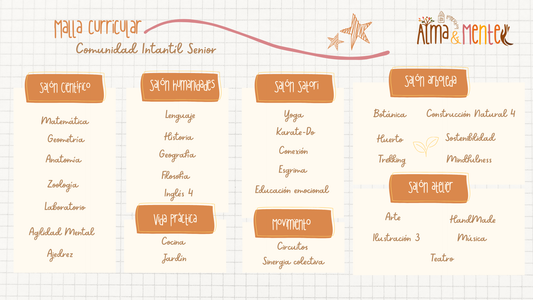 Malla Curricular
Comunidad Infantil Senior
Alma&Mente
Salón Científico
Matemática
Geometría
Anatomía
Zoología
Laboratorio
Agilidad Mental
Ajedrez
Salón Humanidades
Lenguaje
Historia
Geografía
Filosofía
Inglés 4
Vida práctica
Cocina
Jardín
Salón Satori
Yoga
Karate-Do
Conexión
Esgrima
Educación emocional
Movimento
Circuitos
Sinergia colectiva
Salón arboleda
Botánica
Construcción Natural 4
Huerto
Sostenibilidad
Trekking
Mindfulness
Salón atelier
Arte
HandMade
Ilustración 3
Música
Teatro